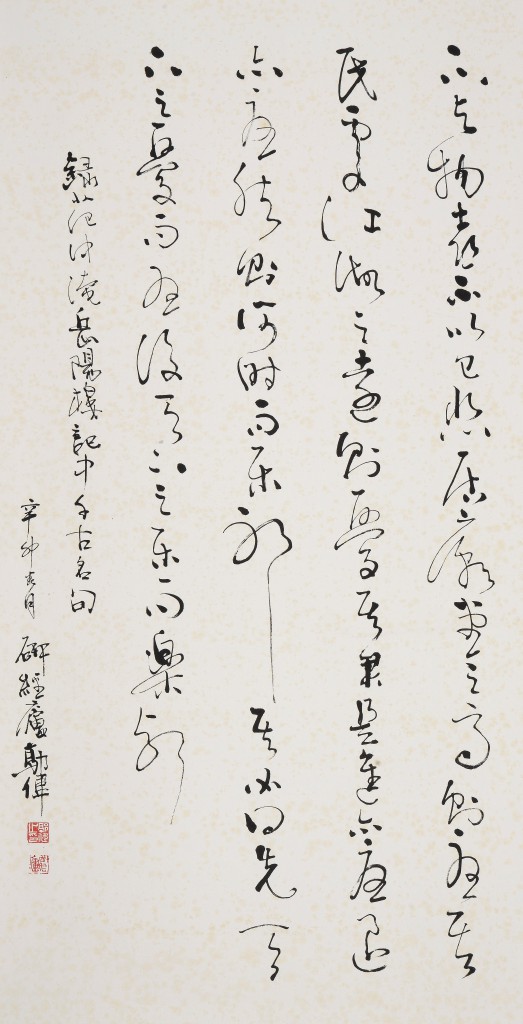 不以物喜不以己悲居廟堂之高則憂其
民處江湖之遠則憂其君是進亦憂退
亦憂然則何時而樂耶其必曰先天
下之憂而憂後天下之樂而樂耶
錄范仲淹岳陽樓記中千古名句
辛卯月 經廬偉